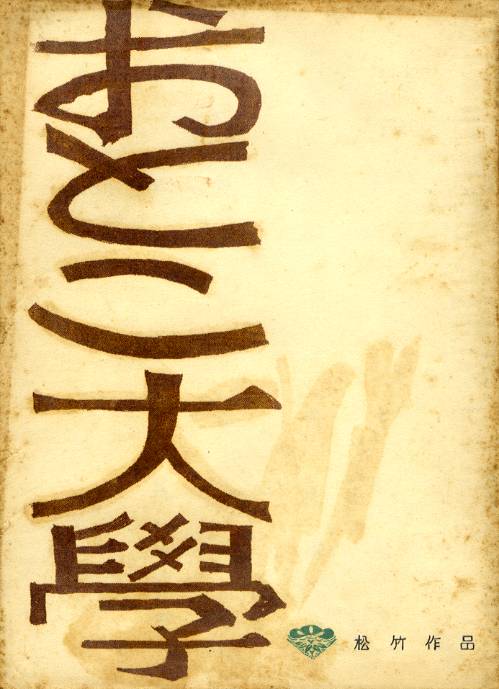 おとこ大學
松竹作品